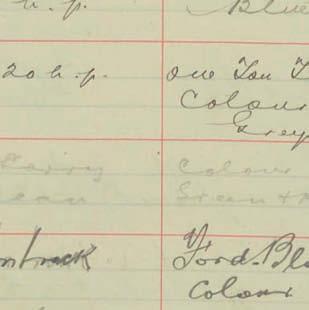 h.p. Blue
20 h.p. One Ton T
Colour
Grey
Colour
Green +
Ford. Bla
Colour